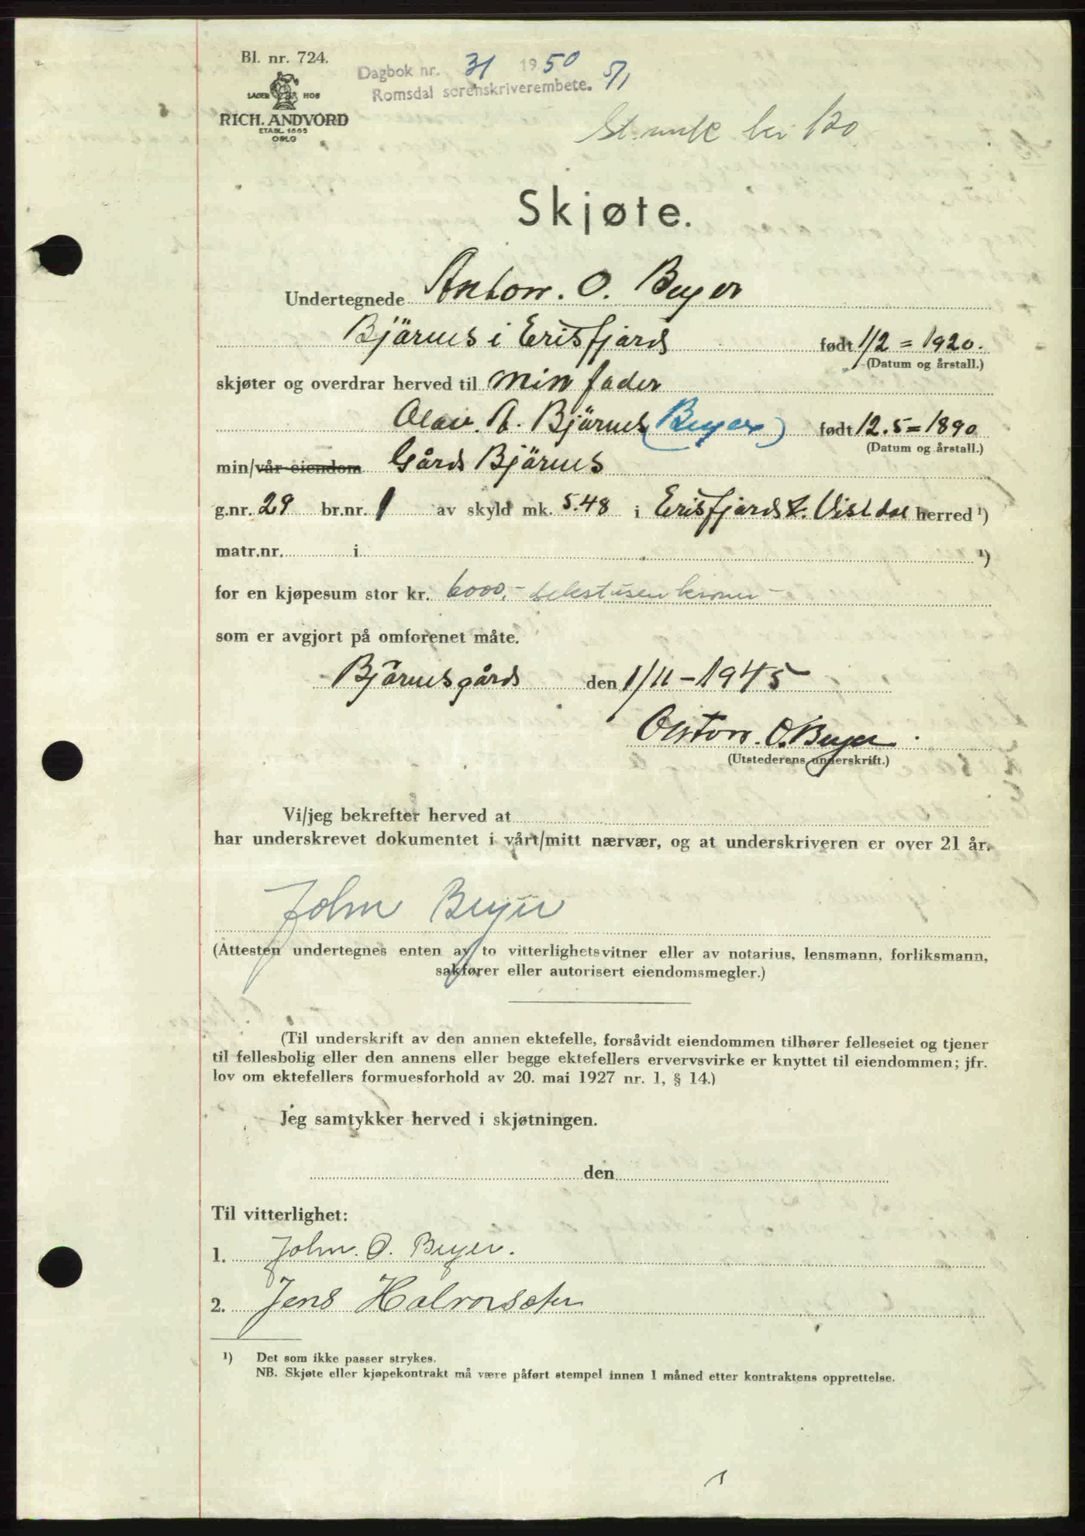 Bl. nr. 724.
LAGER HOS
RICH. ANDVORD
ETABL. 1865
OSLO
Dagbok nr. 31 1950 5/1
Romsdal sorenskriverembete.
St. mk kr 120
Skjøte.
Undertegnede Anton. O. Beyer
Bjärnes i Erisfjard født 1/2 = 1920.
(Datum og årstall.)
skjøter og overdrar herved til min fader
Olav. A. Bjärnes (Beyer) født 12.5=1890
(Datum og årstall.)
min/vår eiendom Gård Bjärnes
g.nr. 29 br.nr. 1 av skyld mk. 5.48 i Erisfjard & Vistdal herred ¹)
matr.nr. i ¹)
for en kjøpesum stor kr. 6000,- sekstusen kroner -
som er avgjort på omforenet måte.
Bjärnesgård den 1/11 - 1945
Anton. O. Beyer.
(Utstederens underskrift.)
Vi/jeg bekrefter herved at
har underskrevet dokumentet i vårt/mitt nærvær, og at underskriveren er over 21 år.
John Beyer
(Attesten undertegnes enten av to vitterlighetsvitner eller av notarius, lensmann, forliksmann,
sakfører eller autorisert eiendomsmegler.)
(Til underskrift av den annen ektefelle, forsåvidt eiendommen tilhører felleseiet og tjener
til fellesbolig eller den annens eller begge ektefellers ervervsvirke er knyttet til eiendommen; jfr.
lov om ektefellers formuesforhold av 20. mai 1927 nr. 1, § 14.)
Jeg samtykker herved i skjøtningen.
den
Til vitterlighet:
1. John. O. Beyer.
2. Jens Halvorsæter
¹) Det som ikke passer strykes.
NB. Skjøte eller kjøpekontrakt må være påført stempel innen 1 måned etter kontraktens opprettelse.